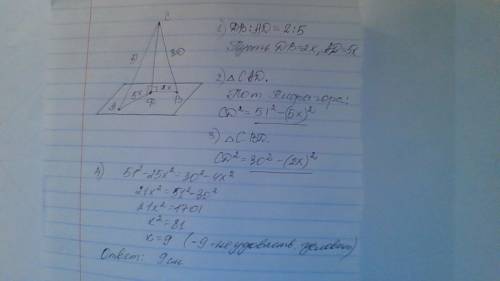 C
51
30
5x
2x
A
D
B
1) DB:AD = 2:5
Пусть DB=2x, AD=5x
2) △CAD.
По т. Пифагора:
CD²=51²-(5x)²
3) △CBD.
CD²=30²-(2x)²
4) 51²-25x²=30²-4x²
21x²=51²-30²
21x²=1701
x²=81
x=9 (-9-неудовлетв. условию)
Ответ: 9см